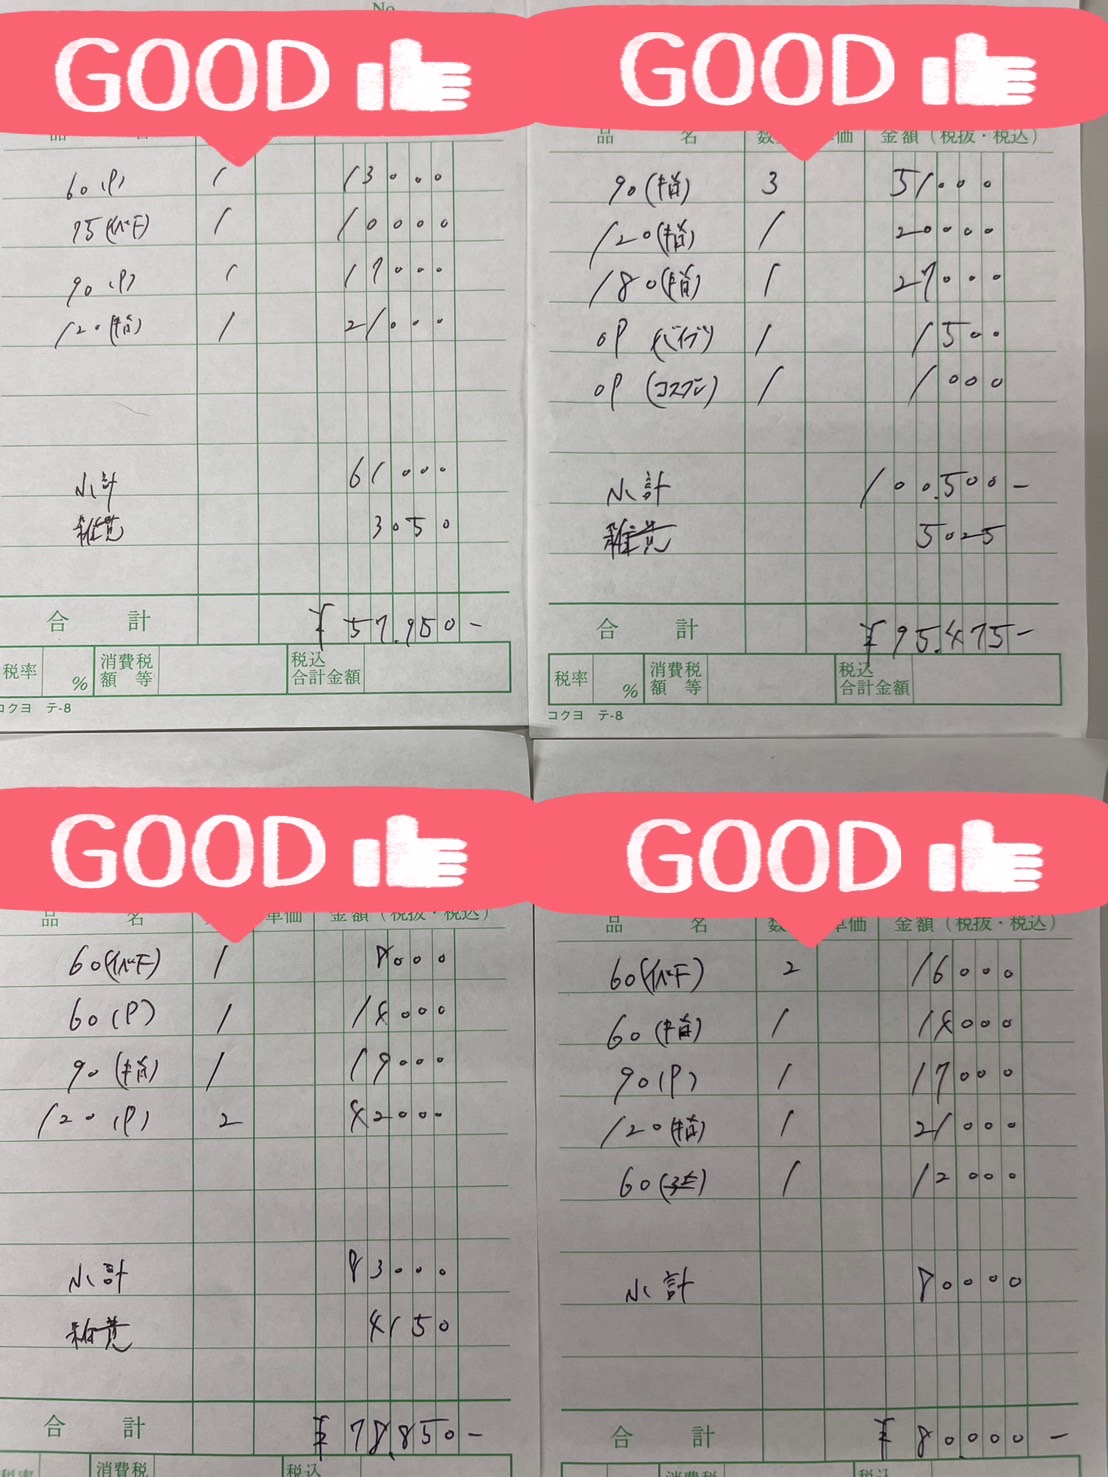 No.
GOOD
60(P) 1 13000
75(イベT) 1 10000
90(P) 1 17000
120(指) 1 21000
小計 61000
雑費 3050
合計 ¥57.950-
税率 % 消費税額等 税込合計金額
コクヨ テ-8
GOOD
品名 単価 金額(税抜・税込)
90(指) 3 51000
120(指) 1 20000
180(指) 1 27000
OP (バイブ) 1 1500
OP (コスプレ) 1 1000
小計 100.500-
雑費 5025
合計 ¥95.475-
税率 % 消費税額等 税込合計金額
コクヨ テ-8
GOOD
品名 単価 金額(税抜・税込)
60(イベT) 1 8000
60(P) 1 14000
90(指) 1 19000
120(P) 2 42000
小計 83000
雑費 4150
合計 ¥78.850-
税率 消費税 税込
GOOD
品名 単価 金額(税抜・税込)
60(イベT) 2 16000
60(指) 1 14000
90(P) 1 17000
120(指) 1 21000
60 1 12000
小計 80000
合計 ¥80.000-
消費税 税込